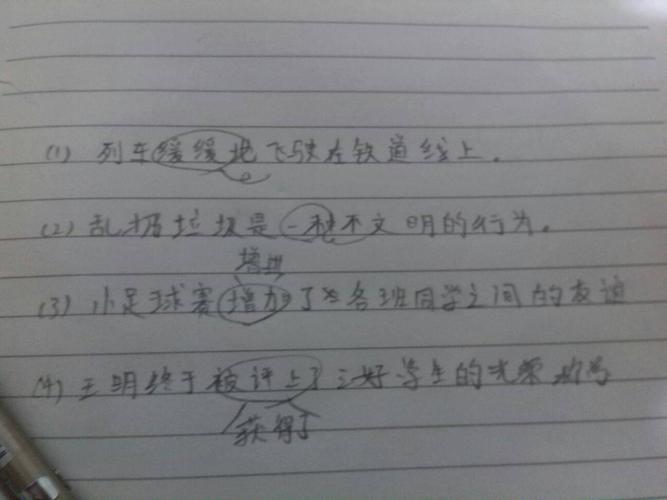 (1) 列车缓缓地飞驶在铁道线上。
(2) 乱扔垃圾是一种不文明的行为。
增进
(3) 小足球赛增加了各班同学之间的友谊
(4) 王明终于被评上了三好学生的光荣称号
获得了